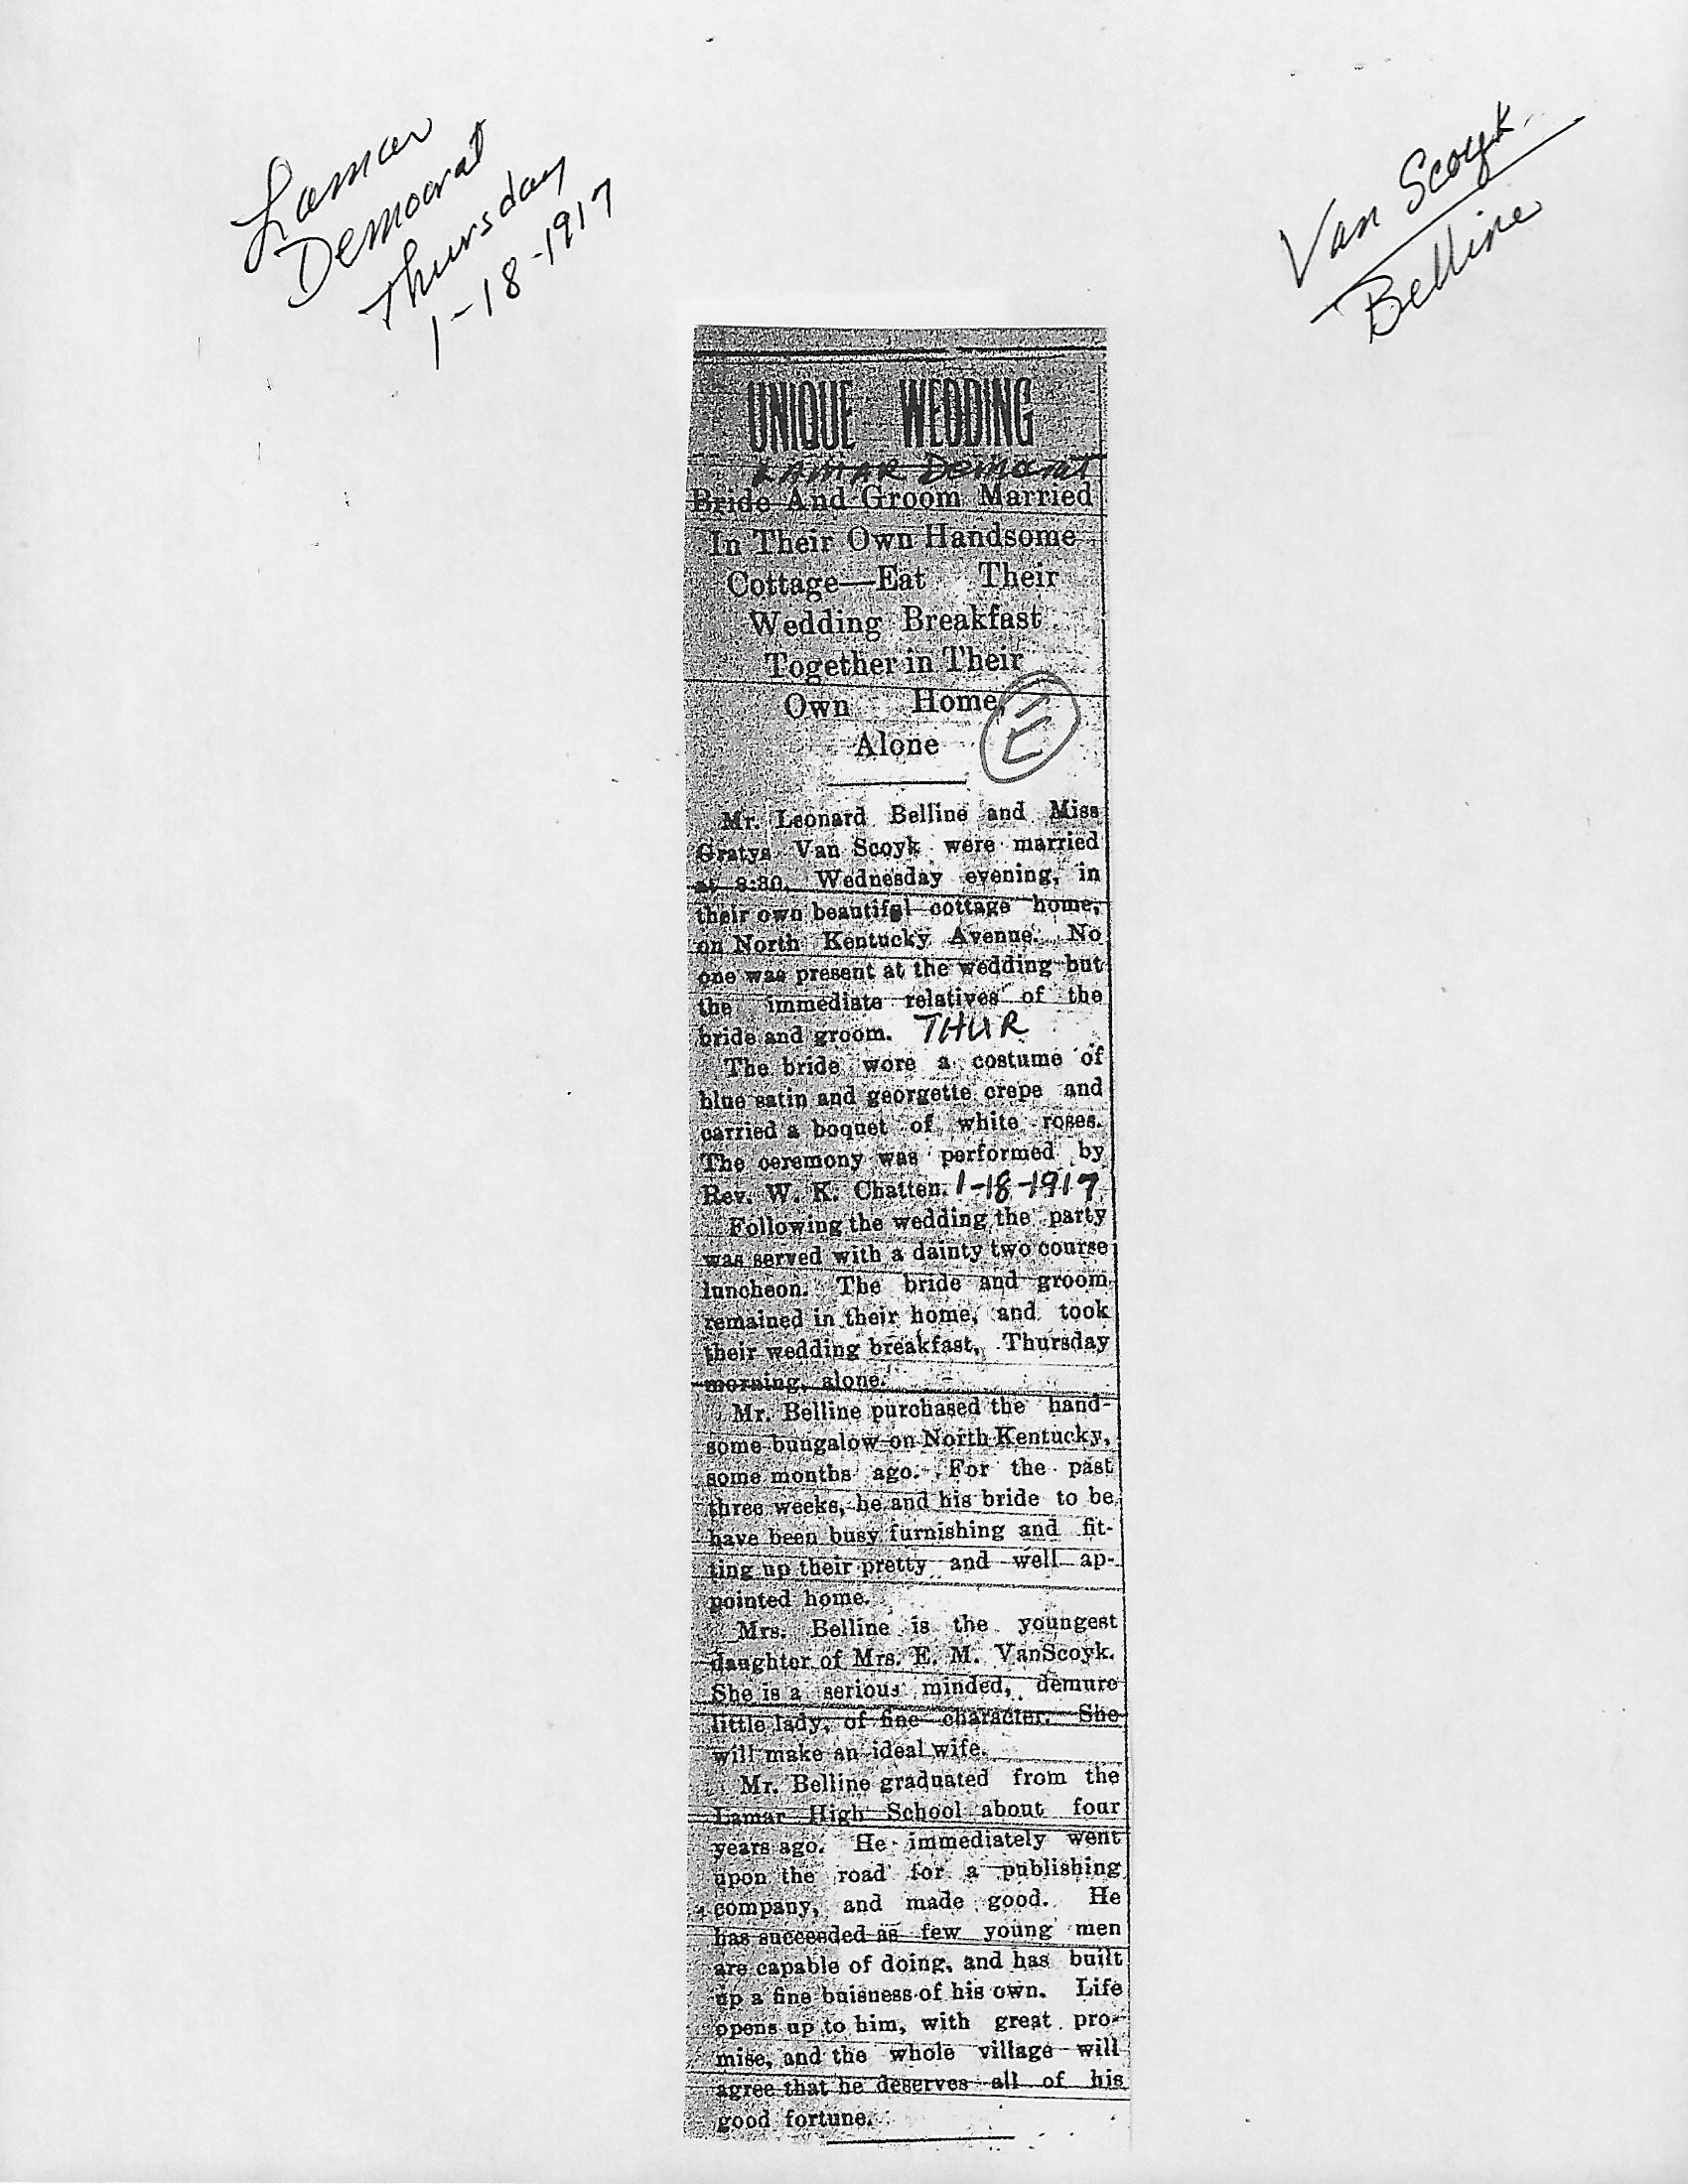 Lamar
Democrat
Thursday
1-18-1917
Van Scoyk
Belline
UNIQUE WEDDING
LAMAR Democrat
Bride And Groom Married
In Their Own Handsome
Cottage—Eat Their
Wedding Breakfast
Together in Their
Own Home,
Alone
E
Mr. Leonard Belline and Miss
Gratys Van Scoyk were married
at 8:30, Wednesday evening, in
their own beautiful cottage home,
on North Kentucky Avenue. No
one was present at the wedding but
the immediate relatives of the
bride and groom. THUR
The bride wore a costume of
blue satin and georgette crepe and
carried a boquet of white roses.
The ceremony was performed by
Rev. W. K. Chatten. 1-18-1917
Following the wedding the party
was served with a dainty two course
luncheon. The bride and groom
remained in their home, and took
their wedding breakfast, Thursday
morning, alone.
Mr. Belline purchased the hand-
some bungalow on North Kentucky,
some months ago. For the past
three weeks, he and his bride to be
have been busy furnishing and fit-
ting up their pretty and well ap-
pointed home.
Mrs. Belline is the youngest
daughter of Mrs. E. M. VanScoyk.
She is a serious minded, demure
little lady, of fine character. She
will make an ideal wife.
Mr. Belline graduated from the
Lamar High School about four
years ago. He immediately went
upon the road for a publishing
company, and made good. He
has succeeded as few young men
are capable of doing, and has built
up a fine buisness of his own. Life
opens up to him, with great pro-
mise, and the whole village will
agree that he deserves all of his
good fortune.